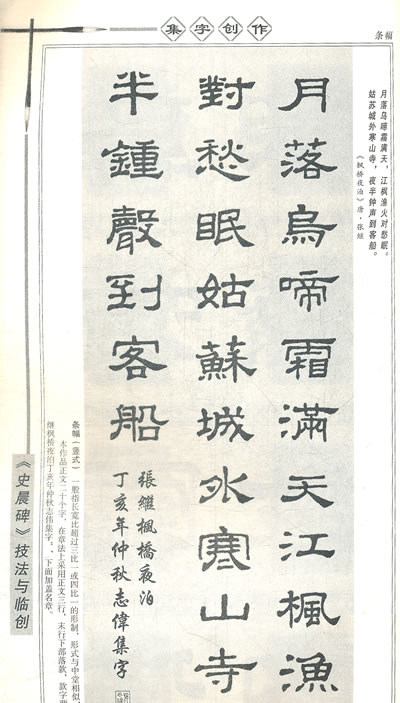 集字创作
条幅
月落乌啼霜满天，江枫渔火对愁眠。
姑苏城外寒山寺，夜半钟声到客船。
《枫桥夜泊》唐·张继
月落烏啼霜滿天江楓漁
對愁眠姑蘇城外寒山寺
半鍾聲到客船
張繼楓橋夜泊
丁亥年仲秋志偉集字
条幅（竖式） 一般指长宽比超过三比一或四比一的形制，形式与中堂相似，
本作品正文二十个字，在章法上采用正文三行，末行下部落款，款字
继枫桥夜泊丁亥年仲秋志伟集字；、下面加盖名章。
《史晨碑》技法与临创